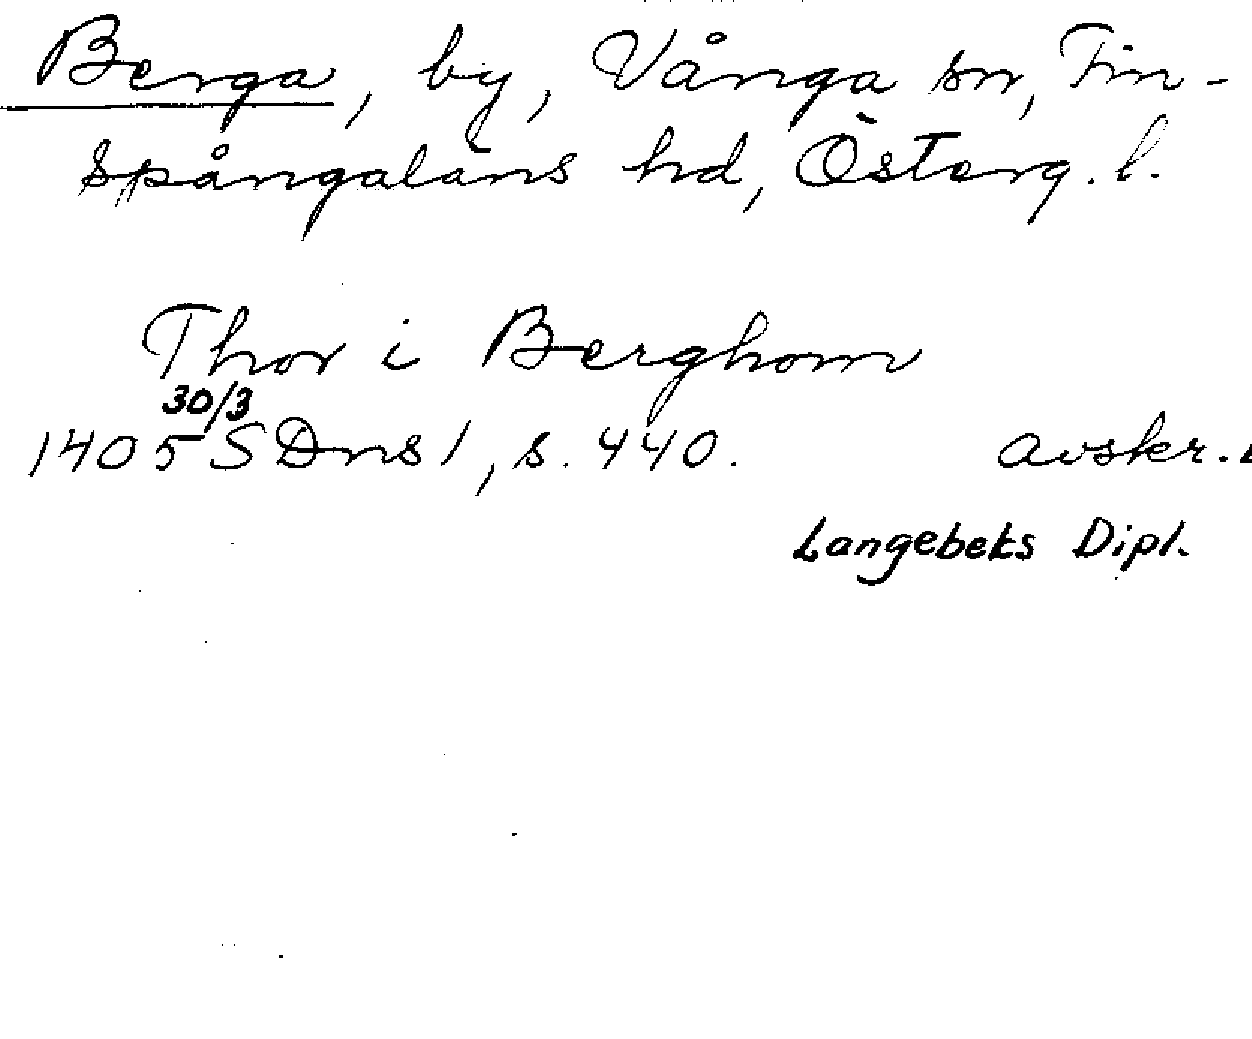 Berga, by, Vånga sn, Fin-
spångaläns hd, Österg. l.
Thor i Berghom
30/3
1405 SDns 1, s. 440. avskr. i
Langebeks Dipl.